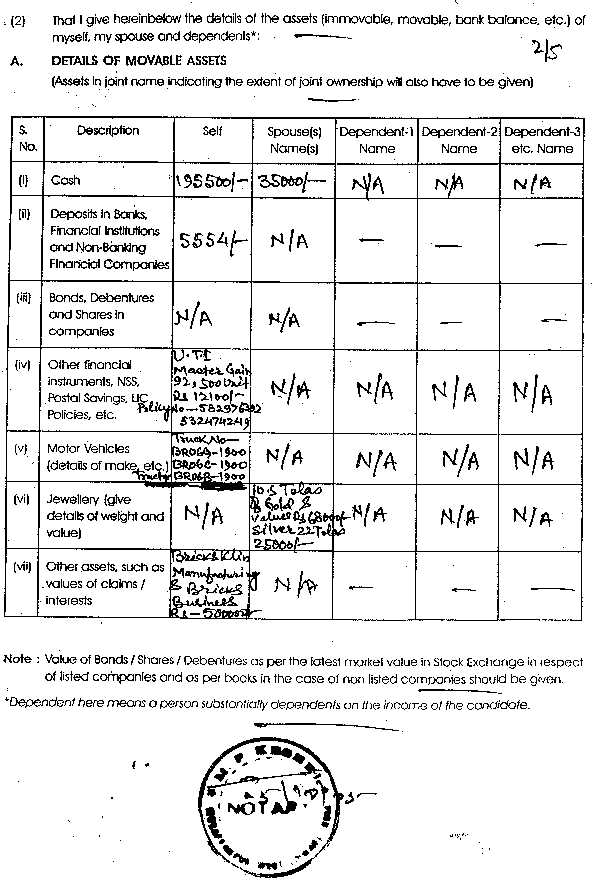 (2) That I give hereinbelow the details of the assets (immovable, movable, bank balance, etc.) of
myself, my spouse and dependents*:
2/5
A. DETAILS OF MOVABLE ASSETS
(Assets in joint name indicating the extent of joint ownership will also have to be given)
S. No. Description Self Spouse(s) Name(s) Dependent-1 Name Dependent-2 Name Dependent-3 etc. Name
(i) Cash 195500/- 35000/- N/A N/A N/A
(ii) Deposits in Banks,
Financial Institutions
and Non-Banking
Financial Companies
5554/- N/A — — —
(iii) Bonds, Debentures
and Shares in
companies
N/A N/A — — —
(iv) Other financial
instruments, NSS,
Postal Savings, LIC
Policies, etc.
U.T.I
Master Gain
92, 500 Unit
Rs 12100/-
Policy No — 532976392
532474249
N/A N/A N/A N/A
(v) Motor Vehicles
(details of make, etc.)
Truck No —
BR06G-1900
BR06C-1900
BR06B-1900
N/A N/A N/A N/A
(vi) Jewellery (give
details of weight and
value)
N/A
10.5 Tolas
of Gold &
Value Rs 68000/-
Silver 22 Tolas
25000/-
N/A N/A N/A
(vii) Other assets, such as
values of claims /
interests
Bricks Klin
Manufacturing
& Bricks
Business
N/A — — —
Note : Value of Bonds / Shares / Debentures as per the latest market value in Stock Exchange in respect
of listed companies and as per books in the case of non listed companies should be given.
*Dependent here means a person substantially dependents on the income of the candidate.
NOTAR